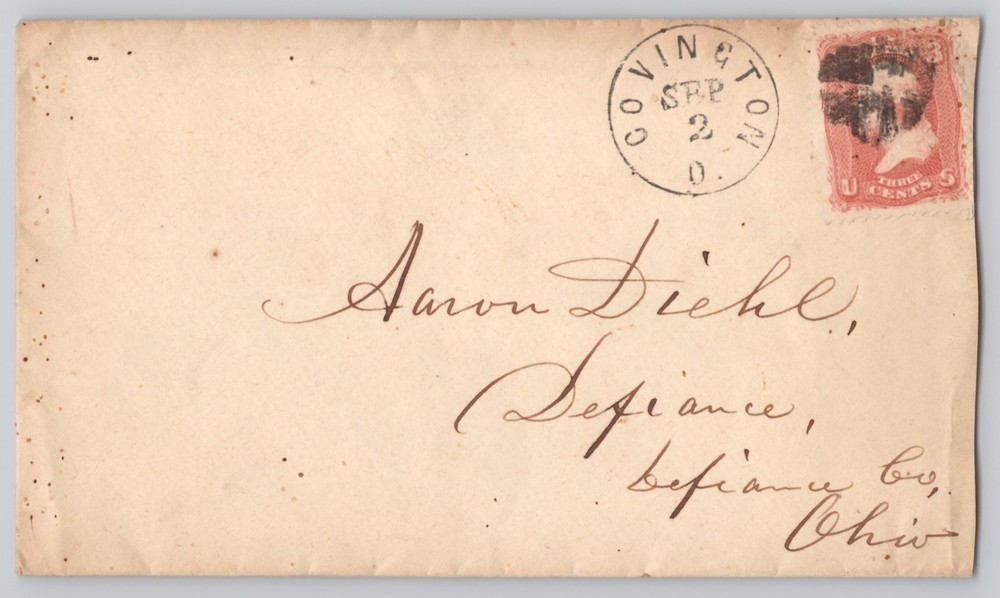 COVINGTON
SEP
2
O.
3
U S
THREE
CENTS
Aaron Diehl,
Defiance,
Defiance Co,
Ohio